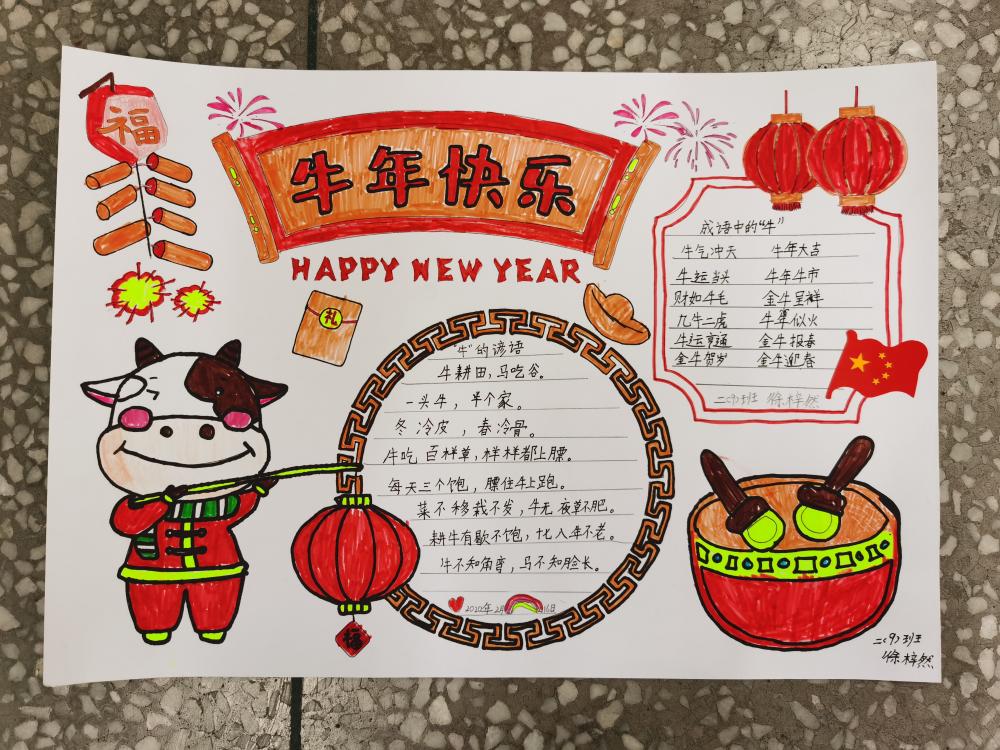 福
牛年快乐
HAPPY NEW YEAR
礼
成语中的“牛”
牛气冲天 牛年大吉
牛运当头 牛年牛市
财如牛毛 金牛呈祥
九牛二虎 牛犟似火
牛运亨通 金牛报春
金牛贺岁 金牛迎春
二(9)班 徐梓然
“牛”的谚语
牛耕田,马吃谷。
一头牛,半个家。
冬冷皮,春冷骨。
牛吃百样草,样样都上膘。
每天三个饱,膘往牛上跑。
菜不移栽不发,牛无夜草不肥。
耕牛有歇不饱,化入年不老。
牛不知角弯,马不知脸长。
月16日
福
二(9)班
徐梓然